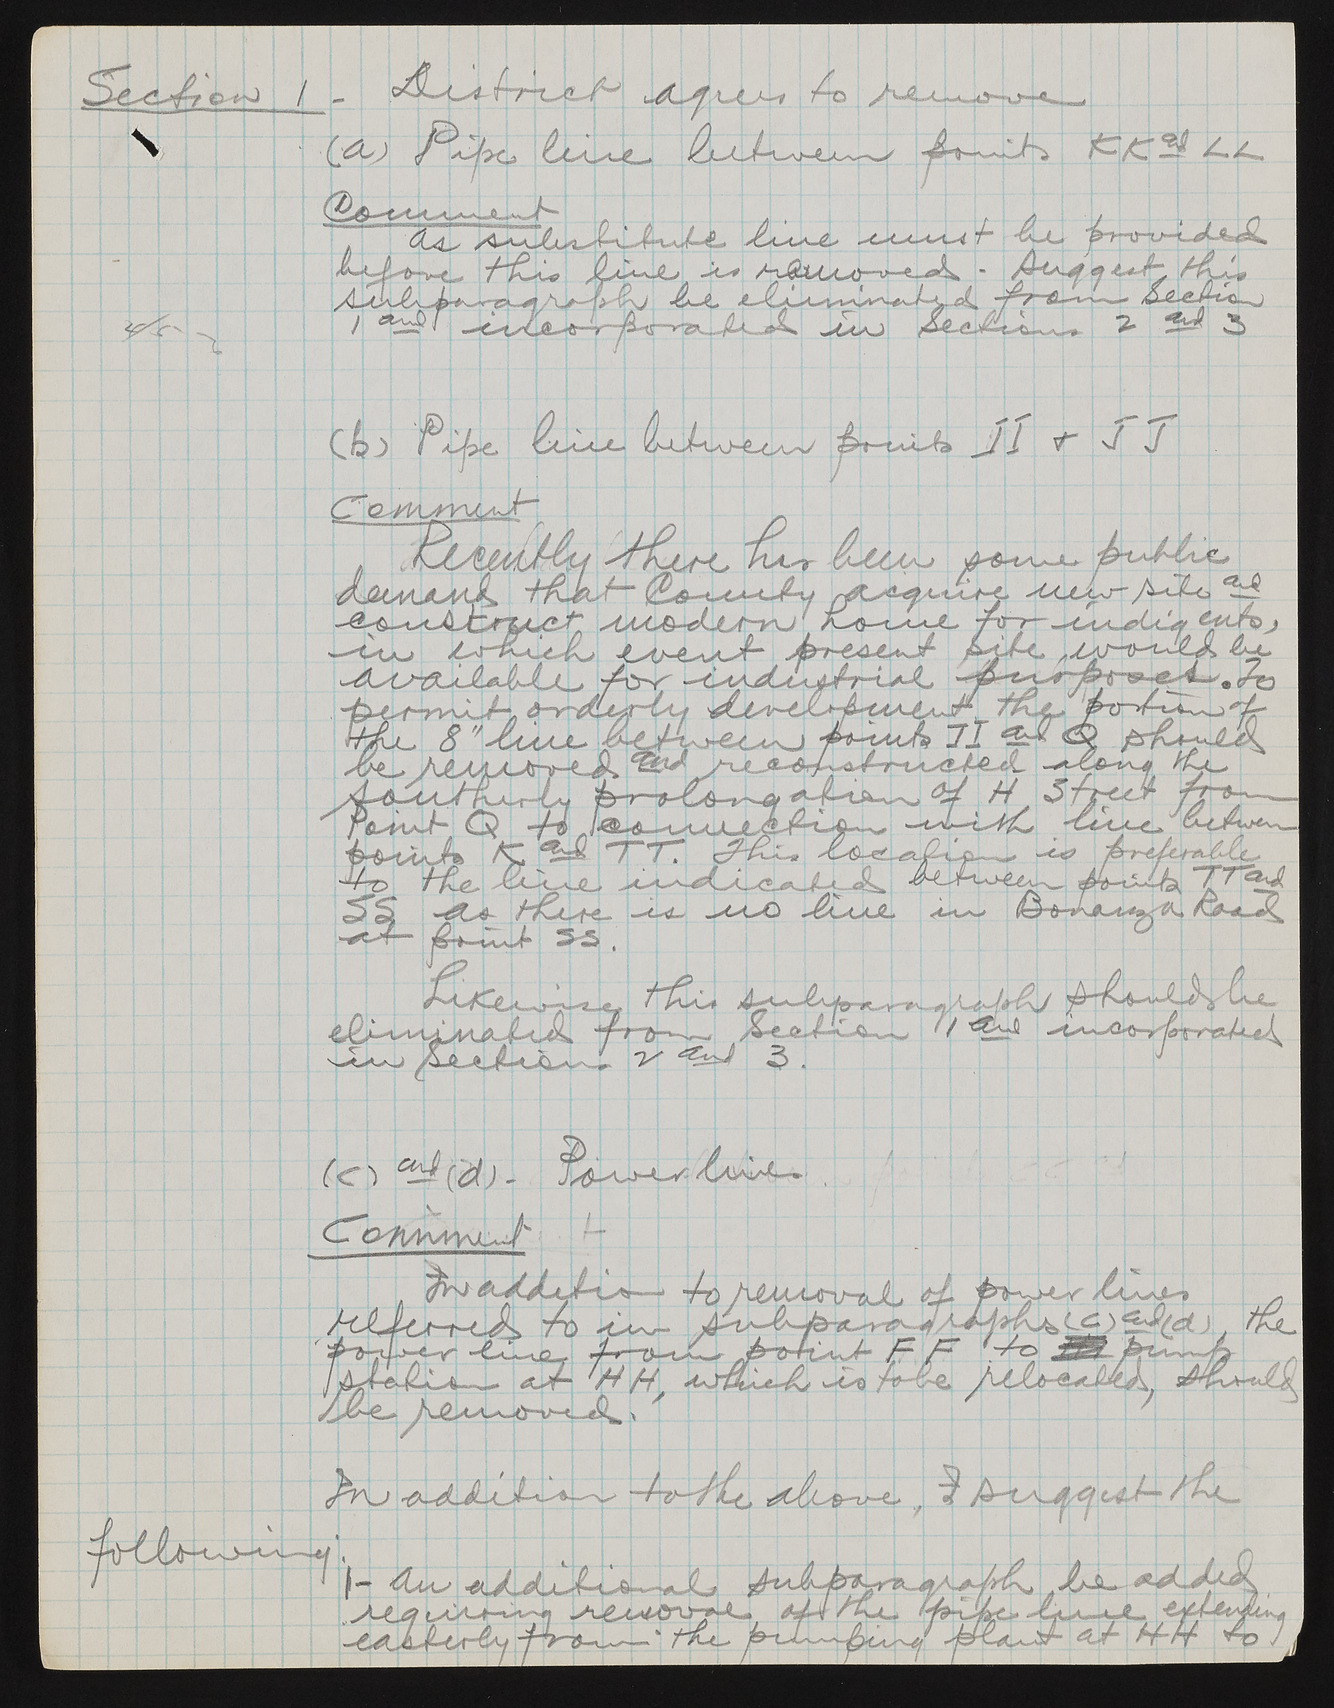 Section 1 - District agrees to remove
(a) Pipe line between points KK and LL
Comment
As substitute line must be provided
before this line is removed - suggest this
subparagraph be eliminated from Section
1 and incorporated in Sections 2 and 3
(b) Pipe line between points II + JJ
Comment
Recently there has been some public
demand that County acquire new site and
construct modern home for indigents,
in which event present site would be
available for industrial purposes. To
permit orderly development the portion of
the 8" line between points II and Q should
be removed and reconstructed along the
southerly prolongation of H Street from
Point Q to connection with line between
points K and TT. This location is preferable
to the line indicated between points TT and
SS as there is no line in Bonanza Road
at point SS.
Likewise this subparagraph should be
eliminated from Section 1 and incorporated
in Sections 2 and 3.
(c) and (d) - Power lines.
Comment
In addition to removal of power lines
referred to in subparagraphs (c) and (d), the
power line from point FF to pump
station at HH, which is to be relocated, should
be removed.
In addition to the above, I suggest the
following:
1- An additional subparagraph be added
requiring removal of the pipe line extending
easterly from the pumping plant at HH to